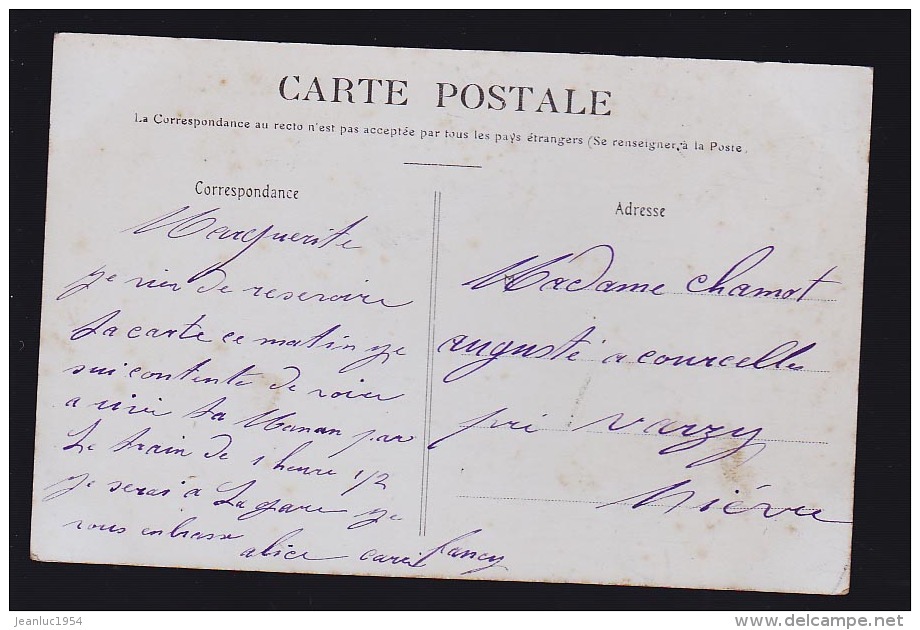 CARTE POSTALE
La Correspondance au recto n'est pas acceptée par tous les pays étrangers (Se renseigner à la Poste
Correspondance
Marguerite
je vien de reservoire
ta carte ce matin je
sui contente de voire
a rivé ta Maman par
le train de 1 heure 1/2
je serai a la gare je
vous enbrasse
alice
Adresse
Madame Chamot
auguste a courcelles
pré varzy
Nièvre
jeanluc1954
delcampe.net